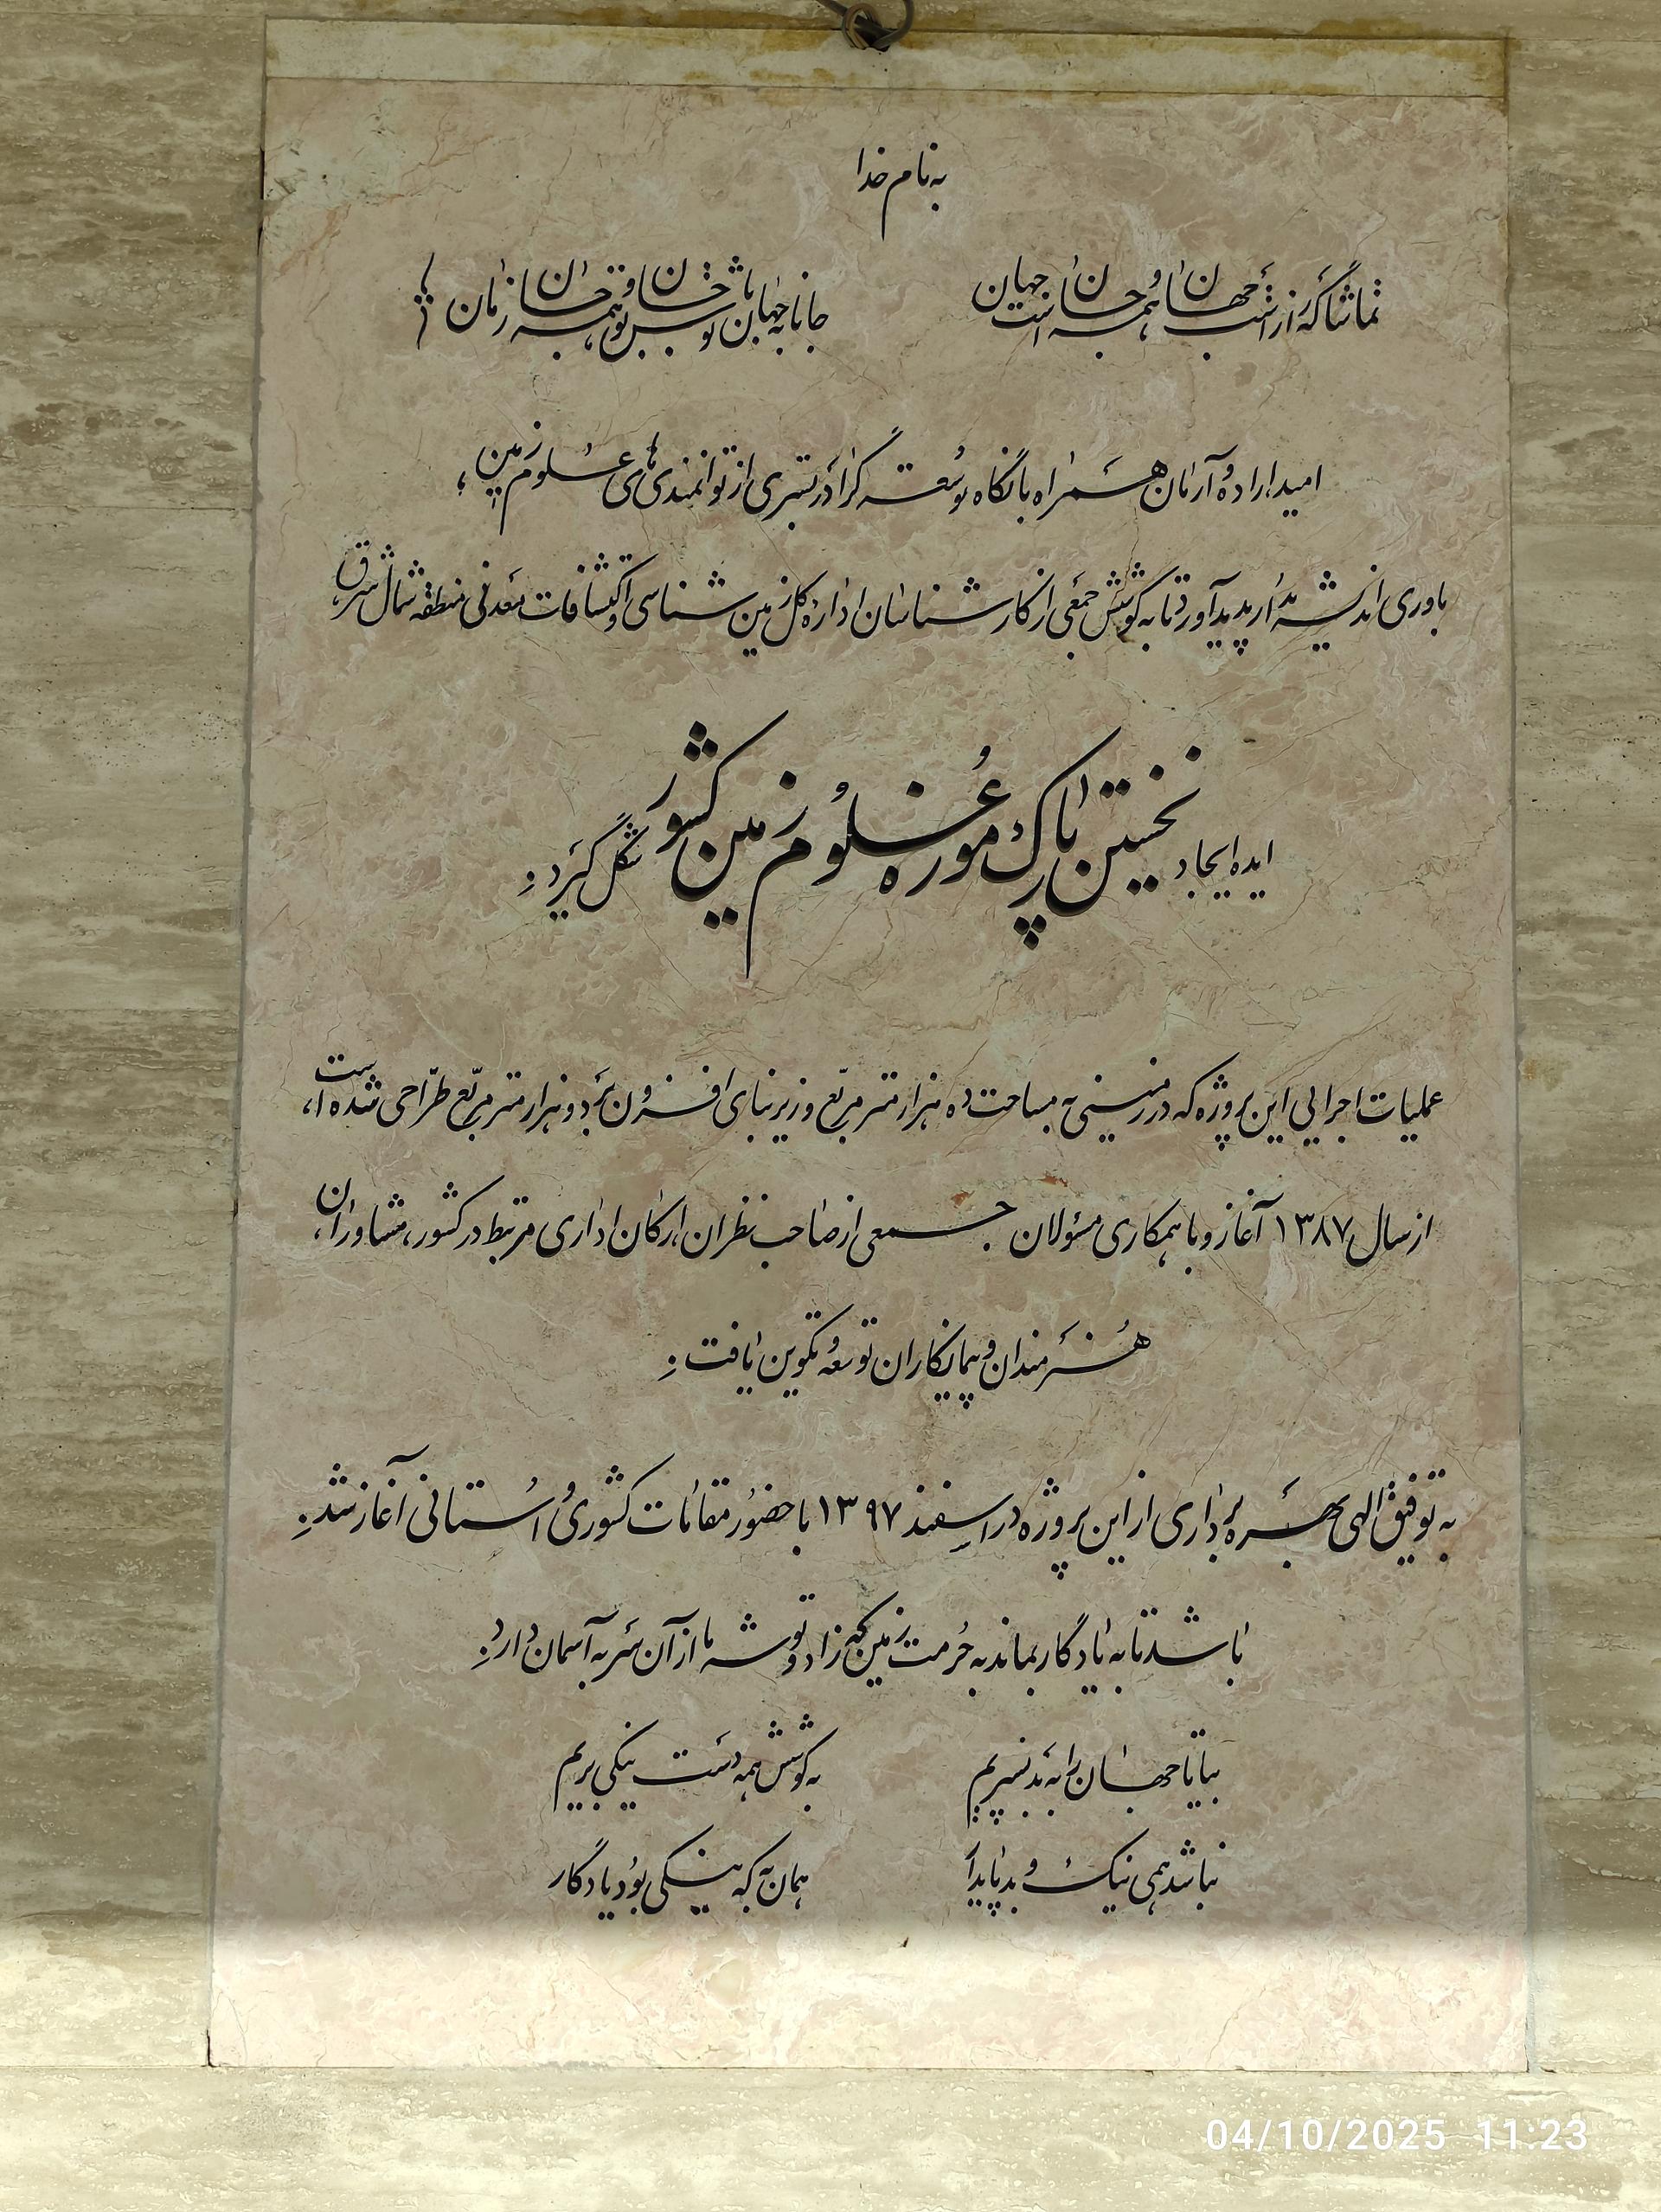 به نام خدا
تماشاگه رازست جهان و همه جانست جهان جانا به جهان باش تو جان بخش و تو همه جان ز زمان
امید، اراده و آرمان همراه با نگاه توسعه گرا در بستری از توانمندی های علوم زمین؛
باوری اندیشه مدار پدید آورد تا به کوشش جمعی از کارشناسان اداره کل زمین شناسی و اکتشافات معدنی منطقه شمال شرق،
ایده ایجاد نخستین پارک موزه علوم زمین کشور شکل گیرد.
عملیات اجرایی این پروژه که در زمینی به مساحت ده هزار متر مربّع و زیربنای افزون بر دو هزار متر مربّع طرّاحی شده است،
از سال ۱۳۸۷ آغاز و با همکاری مسئولان جمعی از صاحب نظران، ارکان اداری مرتبط در کشور، مشاوران،
هنرمندان و پیمانکاران توسعه و تکوین یافت.
به توفیق الهی بهره برداری از این پروژه در اسفند ۱۳۹۷ با حضور مقامات کشوری و استانی آغاز شد.
باشد تا به یادگار بماند به حرمت زمین که زاد و توشه ما از آن سر به آسمان دارد.
بیا تا جهان را به بد نسپریم به کوشش همه دست نیکی بریم
نباشد همی نیک و بد پایدار همان به که نیکی بود یادگار
04/10/2025 11:23